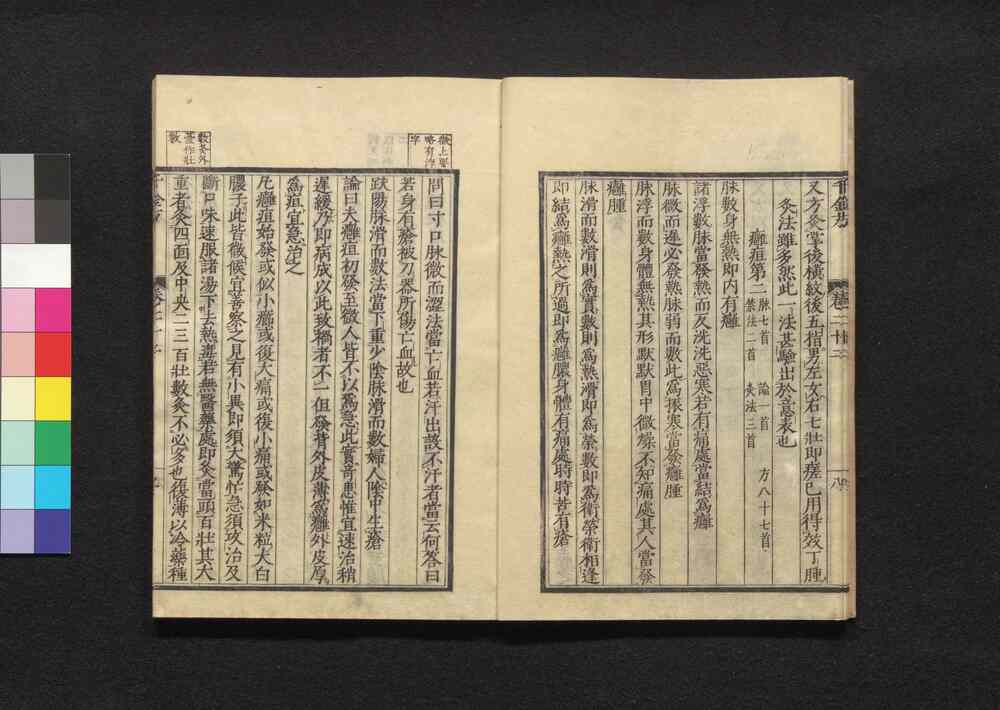 又方灸掌後橫紋後五指男左女右七壯即瘥已用得效丁腫
灸法雖多然此一法甚驗出於意表也
癰疽第二 脉七首 論一首 方八十七首
禁法二首 灸法三首
脉數身無熱即內有癰
諸浮數脉當發熱而反洗洗惡寒若有痛處當結爲癰
脉微而遲必發熱脉弱而數此爲振寒當發癰腫
脉浮而數身體無熱其形默默胷中微燥不知痛處其人當發
癰腫
脉滑而數滑則爲實數則爲熱滑即爲榮數即爲衛榮衛相逢
即結爲癰熱之所過即爲癰膿身體有痛處時時苦有瘡
問曰寸口脉微而澀法當亡血若汗出設不汗者當云何答曰
若身有瘡被刀器所傷亡血故也
趺陽脉滑而數法當下重少陰脉滑而數婦人陰中生瘡
論曰夫癰疽初發至微人皆不以爲急此實奇患惟宜速治稍
遲緩乃即病成以此致禍者不一但發背外皮薄爲癰外皮厚
爲疽宜急治之
凡癰疽始發或似小癤或復大痛或復小痛或發如米粒大白
膿子此皆微候宜善察之見有小異即須大驚忙急須攻治及
斷口味速服諸湯下去熱毒若無醫藥處即灸當頭百壯其大
重者灸四面及中央二三百壯數灸不必多也復薄以冷藥種